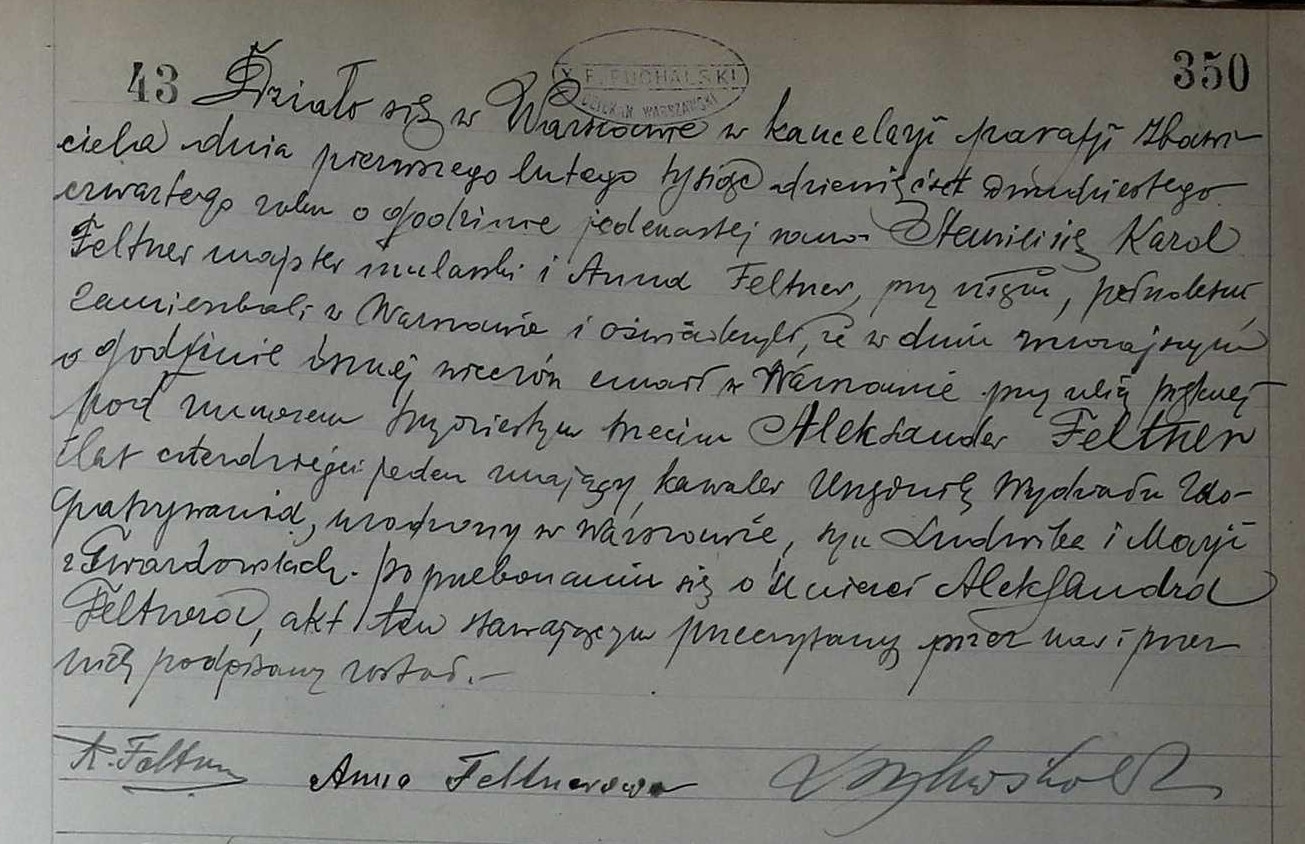 X. F. PUCHALSKI
DZIEKAN WARSZAWSKI
43 350
Działo się w Warszawie w kancelaryi parafji Zbawi-
ciela dnia pierwszego lutego tysiąc dziewięćset dwudziestego
czwartego roku o godzinie jedenastej rano. Stawili się Karol
Feltner majster mularski i Anna Feltner, przy mężu, pełnoletni,
zamieszkali w Warszawie i oświadczyli, że w dniu wczorajszym
o godzinie ósmej wieczór umarł w Warszawie przy ulicy pięknej
pod numerem trzydziestym trzecim Aleksander Feltner
lat czterdzieści jeden mający, kawaler Wydziału Zao-
patrywania, urodzony w Warszawie, syn Ludwika i Maryi
z Twardowskich. Po przekonaniu się o śmierci Aleksandra
Feltnera, akt ten stawającym przeczytany przez nas i przez
nich podpisany został.-
K. Feltner Anna Feltnerowa